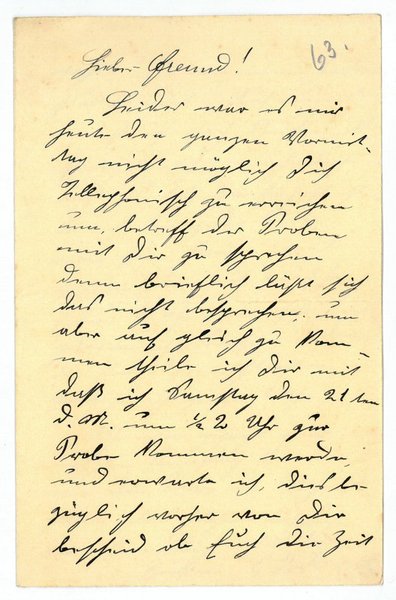 63.
Lieber Freund!
Leider war es mir
heute den ganzen Vormit-
tag nicht möglich Dich
Tellephonisch zu erreichen
um, betreff der Proben
mit Dir zu sprechen
denn brieflich läßt sich
das nicht besprechen. um
aber auf gleich zu kom-
men theile ich Dir mit
daß ich Samstag den 21ten
d. M. um ½ 2 Uhr zur
Probe kommen werde,
und erwarte ich, diesbe-
züglich vorher von Dir
bescheid ob Euch die Zeit